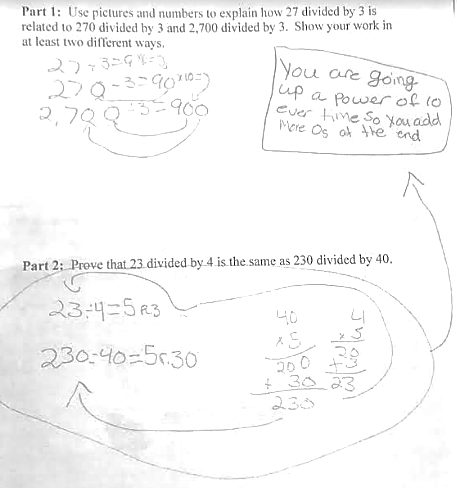 Part 1: Use pictures and numbers to explain how 27 divided by 3 is
related to 270 divided by 3 and 2,700 divided by 3. Show your work in
at least two different ways.
27÷3=9
270÷3=90
2,700÷3=900
You are going
up a power of 10
ever time So You add
More 0s at the end
Part 2: Prove that 23 divided by 4 is the same as 230 divided by 40.
23÷4=5R3
230÷40=5r.30
40
x 5
200
+ 30
230
4
x 5
20
+3
23